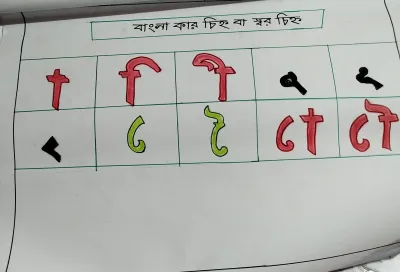 বাংলা কার চিহ্ন বা স্বর চিহ্ন
া ি ী ু ূ
ৃ ে ৈ ো ৌ